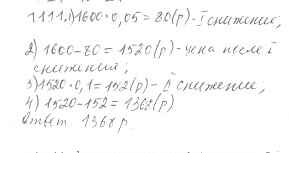 1.111.1)1600·0,05=80(р)-I снижение;
2) 1600-80=1520(р)-цена после I
снижения;
3)1520·0,1=152(р)-II снижение;
4) 1520-152=1368(р)
Ответ 1368 р.